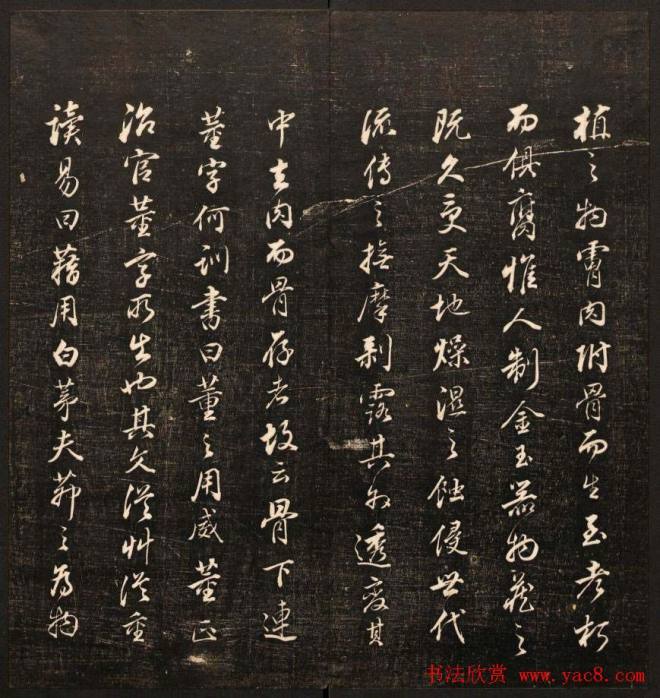 植之物肉附骨而生至老朽
而俱腐惟人制金玉器物藏之
既久更天地燥濕之蝕侵世代
流傳之撫摩剥露其外透变其
中去肉而骨存者故云骨下連
董字何訓書曰董之用威董正
治官董字所生也其文從艸從重
讀易曰藉用白茅夫茅之為物
书法欣赏 www.yac8.com